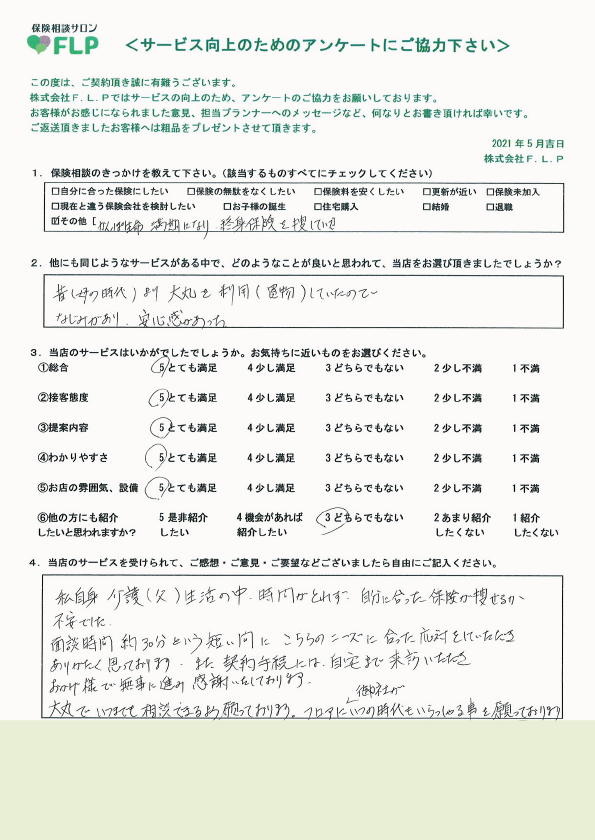 保険相談サロン
FLP
＜サービス向上のためのアンケートにご協力下さい＞
この度は、ご契約頂き誠に有難うございます。
株式会社F.L.Pではサービスの向上のため、アンケートのご協力をお願いしております。
お客様がお感じになられました意見、担当プランナーへのメッセージなど、何なりとお書き頂ければ幸いです。
ご返送頂きましたお客様へは粗品をプレゼントさせて頂きます。
2021年5月吉日
株式会社F.L.P
1．保険相談のきっかけを教えて下さい。(該当するものすべてにチェックしてください)
□自分に合った保険にしたい □保険の無駄をなくしたい □保険料を安くしたい □更新が近い □保険未加入
□現在と違う保険会社を検討したい □お子様の誕生 □住宅購入 □結婚 □退職
☑その他［かんぽ生命 満期になり 終身保険を捜していた
2．他にも同じようなサービスがある中で、どのようなことが良いと思われて、当店をお選び頂きましたでしょうか？
昔(母の時代)より 大丸を利用(買物)していたので
なじみがあり、安心感があった
3．当店のサービスはいかがでしたでしょうか。お気持ちに近いものをお選びください。
①総合 5とても満足 4少し満足 3どちらでもない 2少し不満 1不満
②接客態度 5とても満足 4少し満足 3どちらでもない 2少し不満 1不満
③提案内容 5とても満足 4少し満足 3どちらでもない 2少し不満 1不満
④わかりやすさ 5とても満足 4少し満足 3どちらでもない 2少し不満 1不満
⑤お店の雰囲気、設備 5とても満足 4少し満足 3どちらでもない 2少し不満 1不満
⑥他の方にも紹介 5是非紹介 4機会があれば 3どちらでもない 2あまり紹介 1紹介
したいと思われますか？ したい 紹介したい したくない したくない
4．当店のサービスを受けられて、ご感想・ご意見・ご要望などございましたら自由にご記入ください。
私自身 介護(父)生活の中、時間がとれず、自分に合った保険が捜せるか
不安でした。
面談時間 約30分という短い間に こちらのニーズに合った応対をしていただき
ありがたく思っております。また 契約手続には、自宅まで来訪いただき
おかげ様で無事に進み 感謝いたしております。
大丸で いつまでも相談できるよう願っております。フロアに御社がいつの時代もいらっしゃる事を願っております